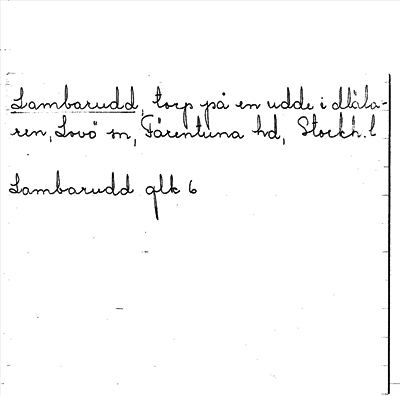 Lambarudd, torp på en udde i Mäla-
ren, Lovö sn, Färentuna hd, Stockh. l
Lambarudd glk 6